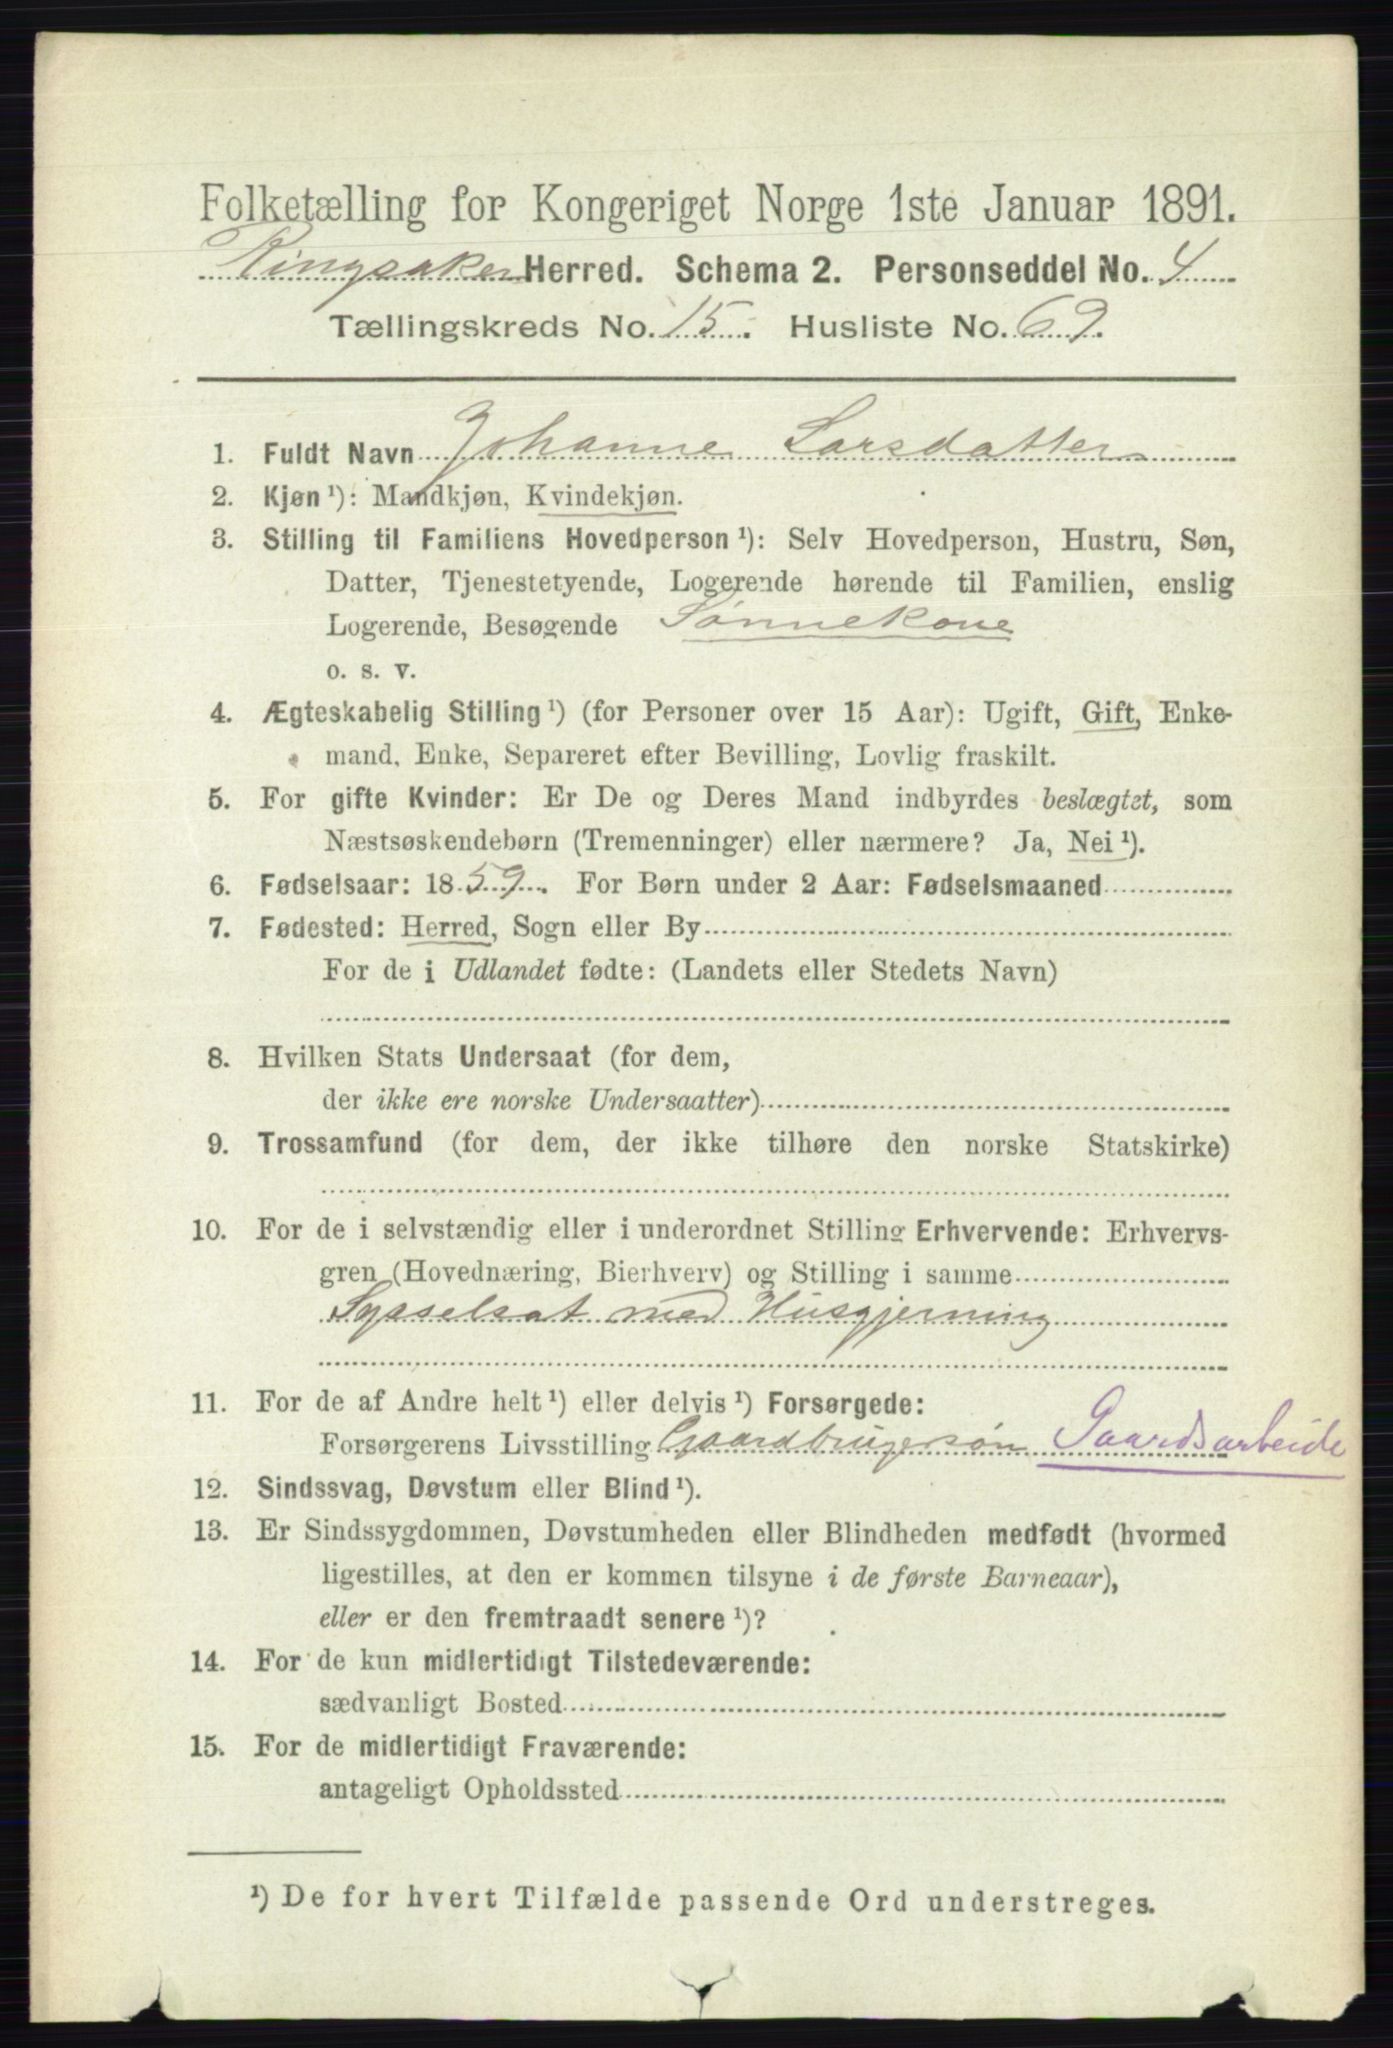 Folketælling for Kongeriget Norge 1ste Januar 1891.
Ringsaker Herred. Schema 2. Personseddel No. 4
Tællingskreds No. 15. Husliste No. 69.
1. Fuldt Navn Johanne Larsdatter
2. Kjøn ¹): Mandkjøn, Kvindekjøn.
3. Stilling til Familiens Hovedperson ¹): Selv Hovedperson, Hustru, Søn,
Datter, Tjenestetyende, Logerende hørende til Familien, enslig
Logerende, Besøgende Sønnekone
o. s. v.
4. Ægteskabelig Stilling ¹) (for Personer over 15 Aar): Ugift, Gift, Enke-
mand, Enke, Separeret efter Bevilling, Lovlig fraskilt.
5. For gifte Kvinder: Er De og Deres Mand indbyrdes beslægtet, som
Næstsøskendebørn (Tremenninger) eller nærmere? Ja, Nei ¹).
6. Fødselsaar: 1859. For Børn under 2 Aar: Fødselsmaaned
7. Fødested: Herred, Sogn eller By
For de i Udlandet fødte: (Landets eller Stedets Navn)
8. Hvilken Stats Undersaat (for dem,
der ikke ere norske Undersaatter)
9. Trossamfund (for dem, der ikke tilhøre den norske Statskirke)
10. For de i selvstændig eller i underordnet Stilling Erhvervende: Erhvervs-
gren (Hovednæring, Bierhverv) og Stilling i samme
Sysselsat med Husgjerning
11. For de af Andre helt ¹) eller delvis ¹) Forsørgede:
Forsørgerens Livsstilling Gaardbrugersøn Gaardsarbeide
12. Sindssvag, Døvstum eller Blind ¹).
13. Er Sindssygdommen, Døvstumheden eller Blindheden medfødt (hvormed
ligestilles, at den er kommen tilsyne i de første Barneaar),
eller er den fremtraadt senere ¹)?
14. For de kun midlertidigt Tilstedeværende:
sædvanligt Bosted
15. For de midlertidigt Fraværende:
antageligt Opholdssted
¹) De for hvert Tilfælde passende Ord understreges.